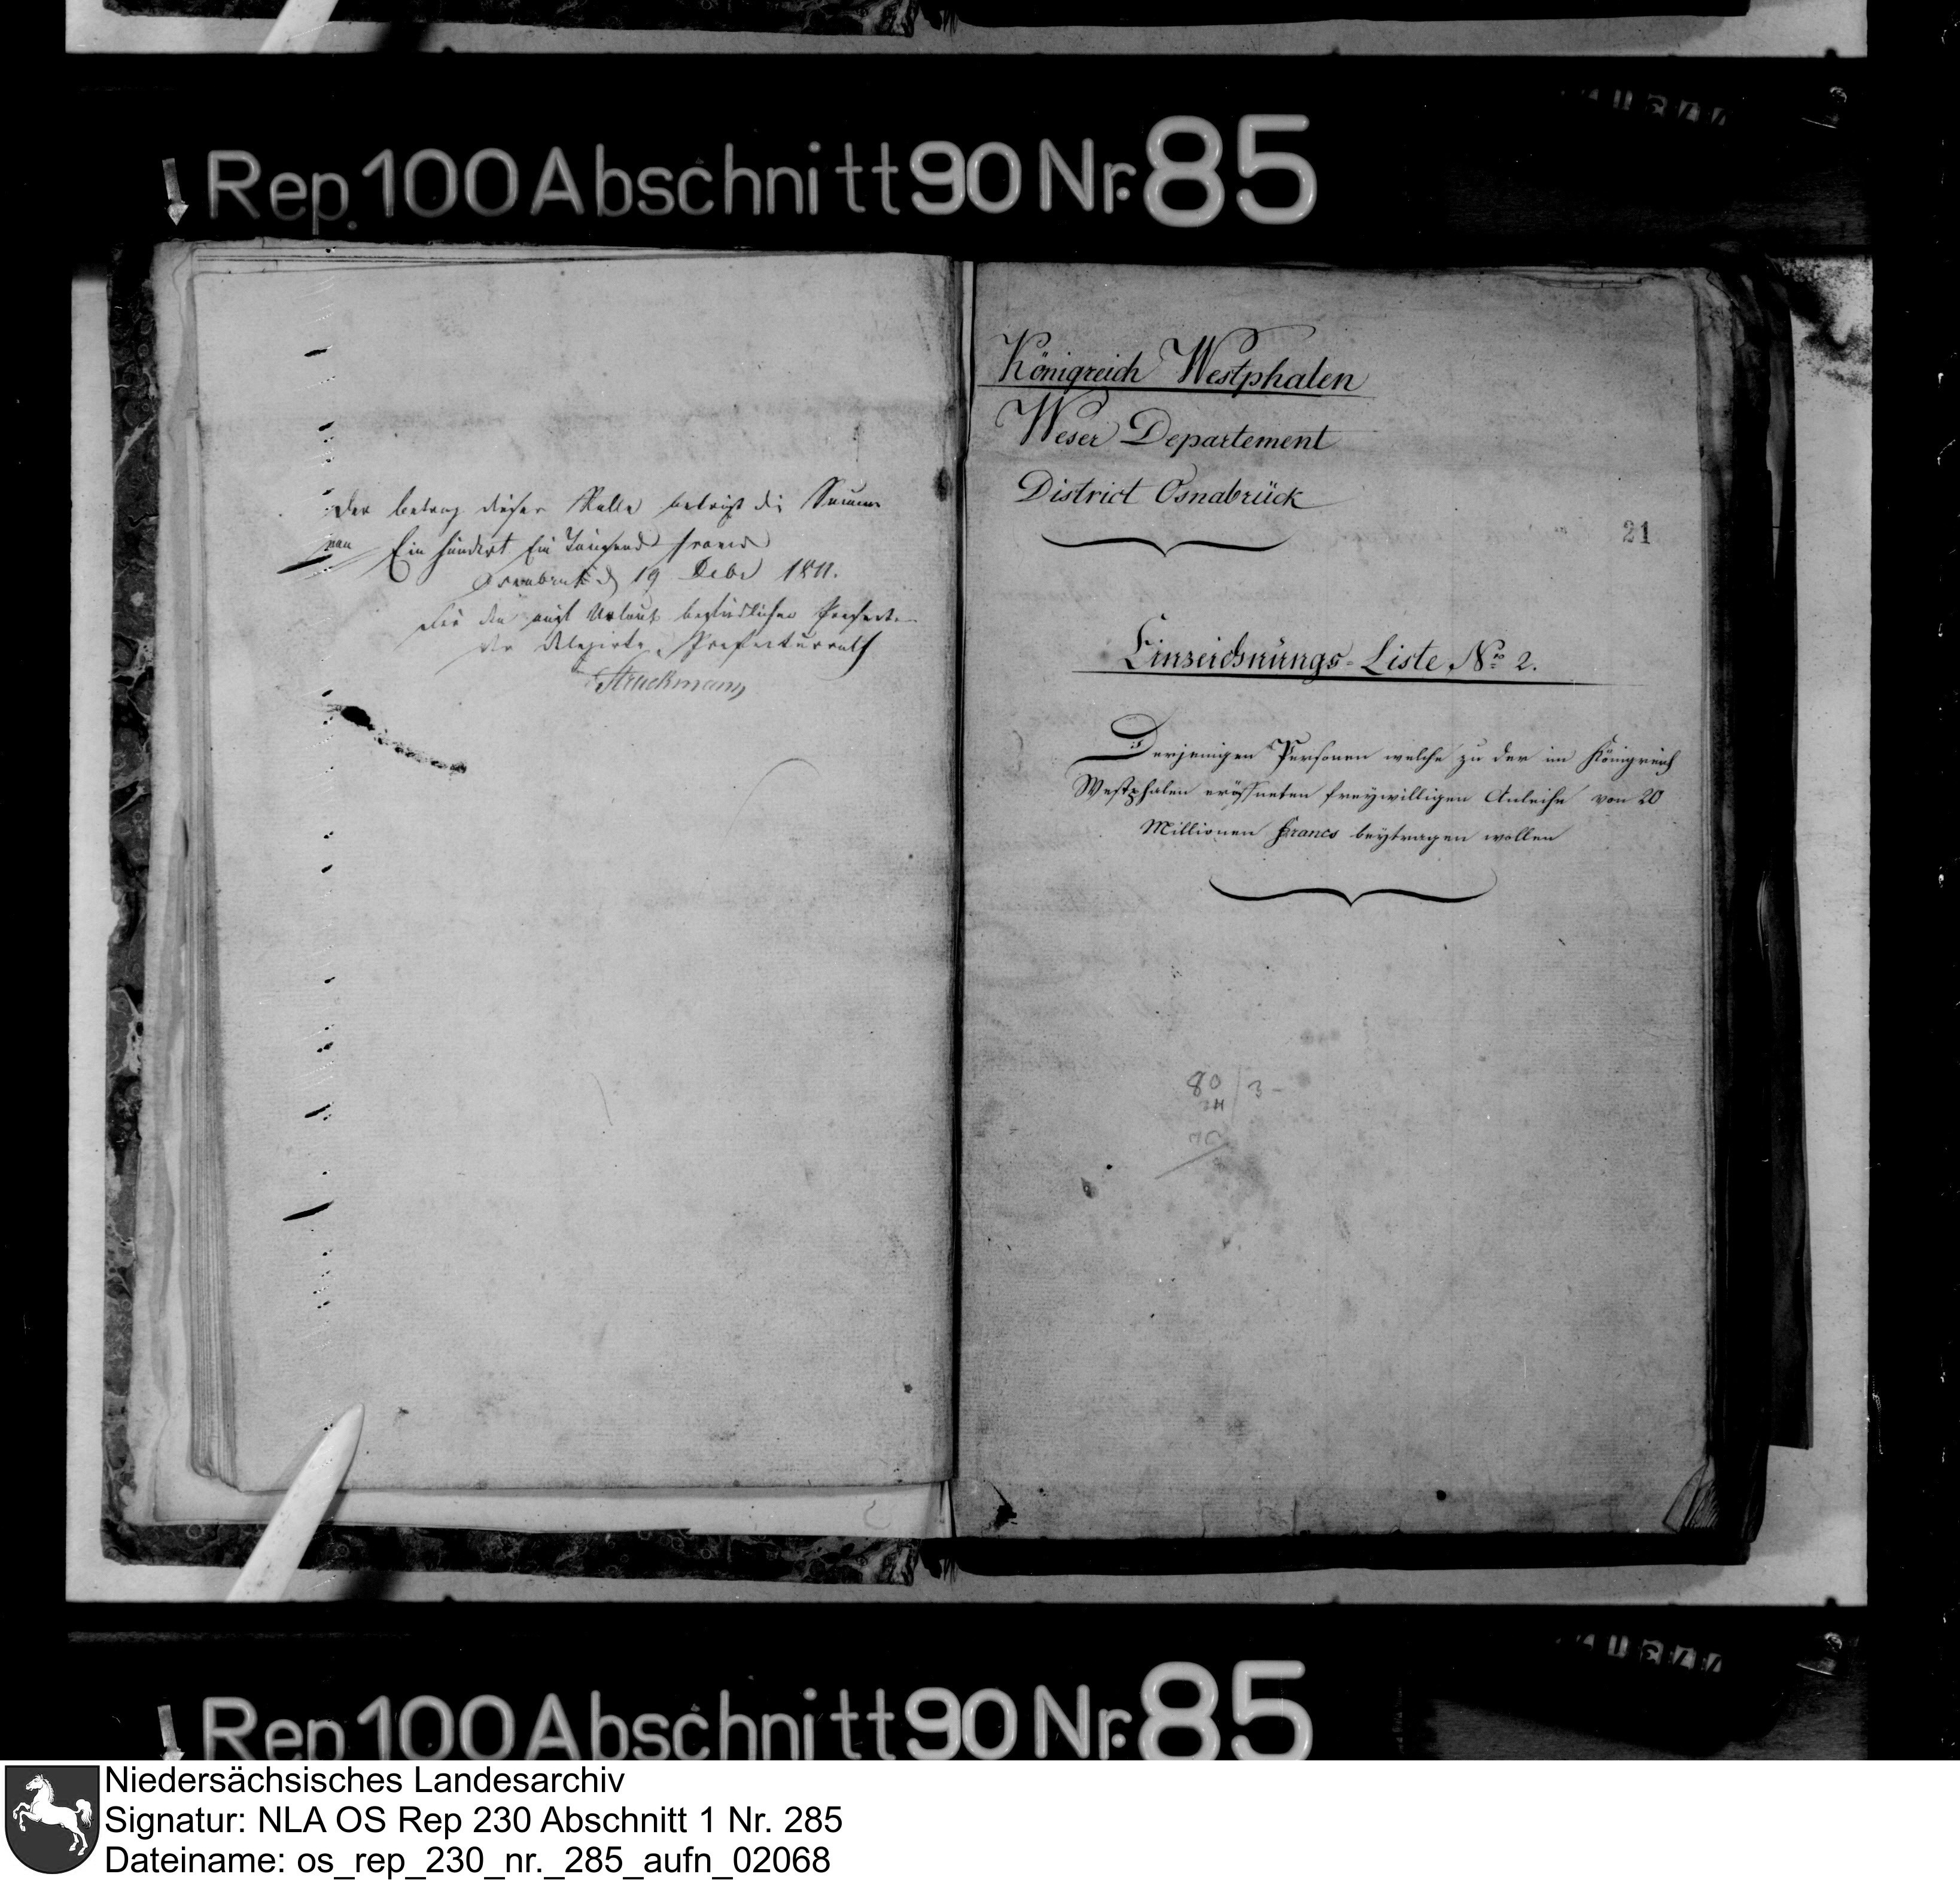 Rep. 100 Abschnitt 90 Nr. 85
Der Betrag dieser Rolle beträgt die Summe
von Ein hundert Ein Tausend Francs
Osnabruk d 19 Debr 1811.
Für den auf Urlaub befindlichen Praefecten
der delegirte Praefecturrath
Struckmann
Königreich Westphalen
Weser Departement
District Osnabrück
21
Einzeichnüngs-Liste Nro 2.
Derjenigen Personen welche zu der im Königreich
Westphalen eröffneten freywilligen Anleihe von 20
Millionen Francs beytragen wollen
80 / 3 -
24
Rep. 100 Abschnitt 90 Nr. 85
Niedersächsisches Landesarchiv
Signatur: NLA OS Rep 230 Abschnitt 1 Nr. 285
Dateiname: os_rep_230_nr._285_aufn_02068